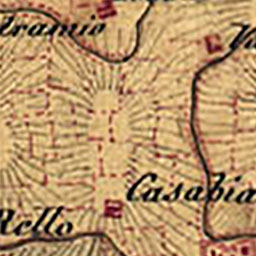 tramio
Va
Casabia
Rello